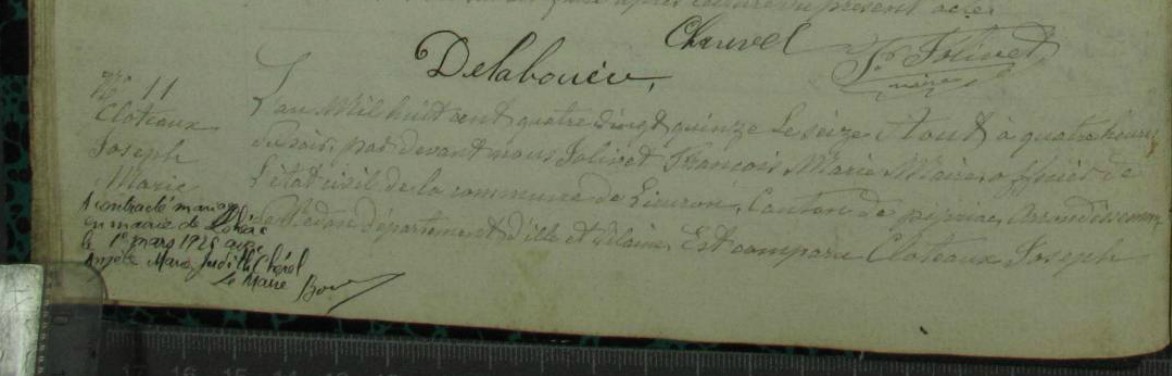 après présent acte
Chauvel
Jn Jolivet
maire
Delabouëre,
No 11
Cloteaux
Joseph
Marie
L'an Mil huit cent quatre vingt quinze le seize Aout, à quatre heures
du soir, par devant nous Jolivet François Marie Maire, officier de
l'état civil de la commune de Lieuron, Canton de pipriac, Arrondissement
de Redon département d'ille et vilaine, Est comparu Cloteaux Joseph
A contracté mariage
en mairie de
le 1er mars 1925 avec
Angèle Marie Judith Chérel
Le Maire